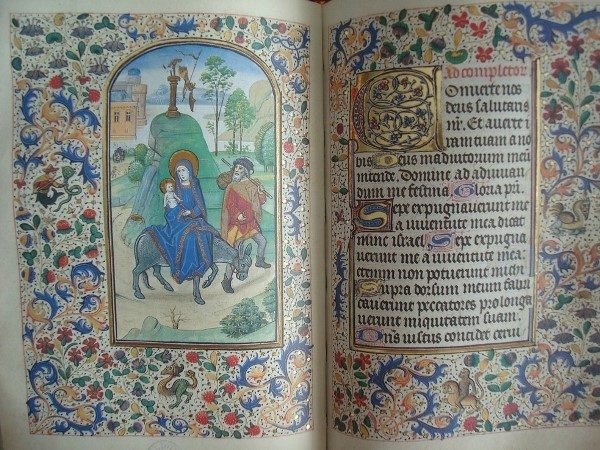 Ad completor
Conuerte nos
deus salutaris
nr̄. Et auerte i
ram tuam a no
bis. Deus in adiutorium meū
intende. Domine ad adiuuan
dum me festina. Gloria pri
Sepe expugnauerunt me
a iuuentute mea dicat
nunc israel. Sepe expugna
uerunt me a iuuentute mea e
tenim non potuerunt michi
Supra dorsum meum fabri
cauerunt peccatores prolonga
uerunt iniquitatem suam.
Dn̄s iustus concidet cerui